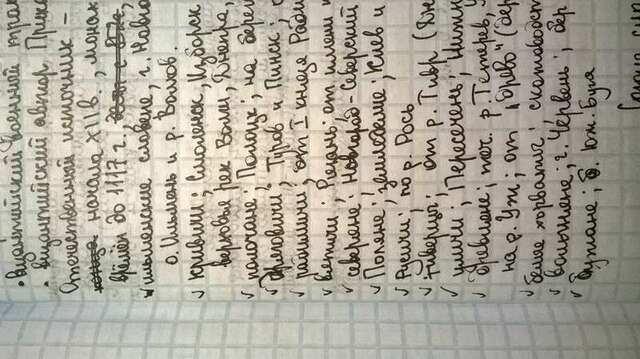 • византийский военный трак
• византийский автор Прис
Отечественный источник –
начала XII в., монах
времён до 1117 г.
ильменские словене, г. Новго
о. Ильмень и р. Волхов.
✓ кривичи; Смоленск, Изборск
верховье рек Волги, Днепра,
✓ полочане; Полоцк; на берег
✓ Дреговичи; Туров и Пинск;
✓ радимичи; от I князя Ради
✓ вятичи; Рязань; от имени к
✓ северяне; Новгород-Северский
✓ Поляне; земледелие; Киев и
✓ Русичи; по р. Рось
✓ тиверцы; от р. Тивр (Дн
✓ уличи; Пересечень; Нижн
✓ древляне; теч. р. Тетерев, у
на р. Уж; от „древо" (дер
✓ белые хорваты; скотоводст
✓ волыняне; г. Червень; дер
✓ Бужане; Юж. Буга